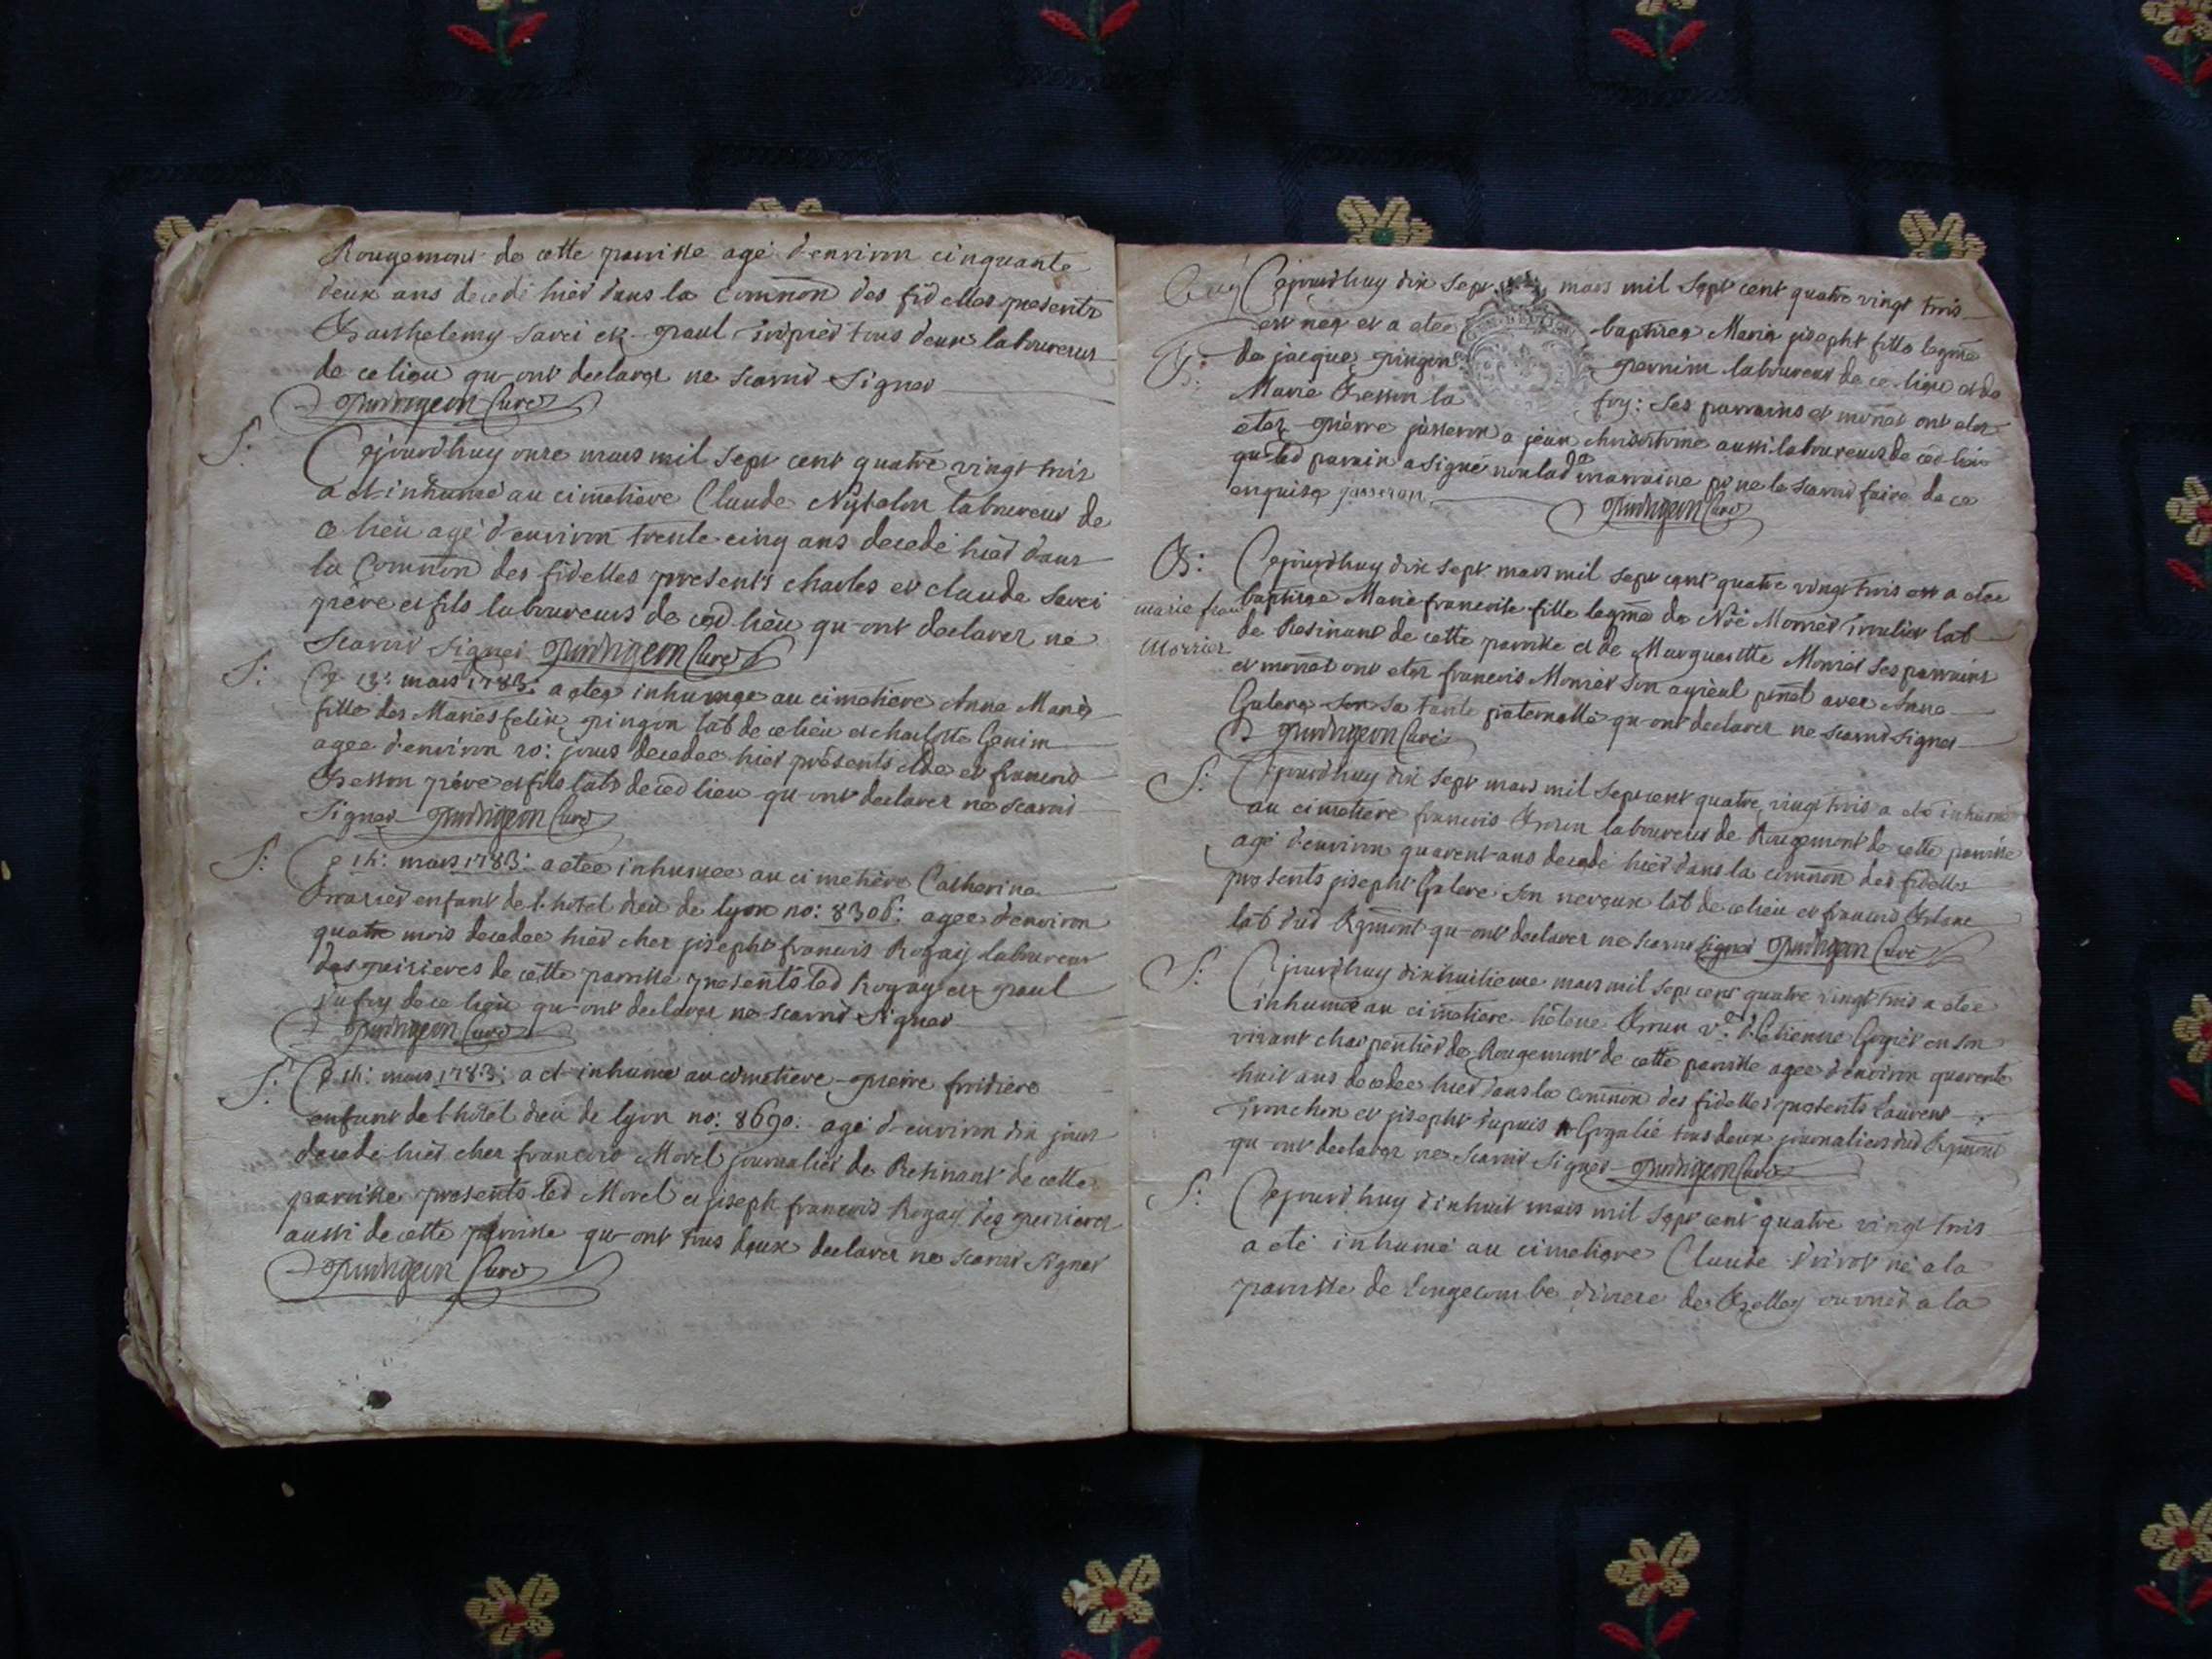 Rougemont de cette paroisse agé d'environ cinquante
deux ans decedé hièr dans la Comñon des fidelles presents
Barthelemy Savei et paul tous deux laboureurs
de ce lieu qu-ont declarer ne scavoir signer
Curé
S: Cejourdhuy onze mars mil sept cent quatre vingt trois
a eté inhumé au cimetière Claude laboureur de
ce lieu agé d'environ trente cinq ans decedé hièr dans
la Comñon des fidelles presents charles et claude Savei
père et fils laboureurs de ced lieu qu-ont declarer ne
scavoir signer Curé
S: Ce 13: mars 1783: a etee inhumee au cimetière Anne Marie
fille des Mariés felix pingon lab de ce lieu et charlotte
agee d'environ 20: jours decedee hièr présents et francois
Besson père et fils lab de ced lieu qu-ont declarer ne scavoir
signer Curé
S: Ce 14: mars 1783: a etee inhumee au cimetière Catherine
enfant de l-hôtel dieu de lyon no: 8306: agee d'environ
quatre mois decedee hièr chez joseph francois Rozay laboureur
des de cette paroisse presents led Rozay et paul
jufoy de ce lieu qu-ont declarer ne scavoir signer
Curé
S: Ce 14: mars 1783: a eté inhumé au cimetiere pierre fridière
enfant de l-hôtel dieu de lyon no: 8690: agé d-environ dix jours
decedé hièr chez francois Morel journalièr de Resinant de cette
paroisse presents led Morel et joseph francois Rozay des
aussi de cette paroisse qu-ont tous deux declarer ne scavoir signer
Curé
Cejourdhuy dix sept mars mil sept cent quatre vingt trois
est nee et a etee baptisee Marie joseph fille legme
B: de jacque pingon pernim laboureur de ce lieu et de
Marie Besson la foy: Ses parrains et ont eter
eter pièrre jasseron a jean aussi laboureurs de ced lieu
que led parrain a signé non lad marraine pr ne le scavoir faire de ce
enquise jasseron. Curé
B: Cejourdhuy dix sept mars mil sept cent quatre vingt trois est a etee
marie fran baptisee Marie francoise fille legme de Noé Monier lab
Monier de Resinant de cette paroisse et de Marguerite Monier ses parrains
et ont eter francois Monièr son ayieul avec Anne
Galere sa tante paternelle qu-ont declarer ne scavoir signer
Curé
S: Cejourdhuy dix sept mars mil sept cent quatre vingt trois a eté inhumé
au cimetière francois laboureur de Rougemont de cette paroisse
agé d'environ quarent-ans decedé hièr dans la comñon des fidelles
presents joseph Galere son neveux lab de ce lieu et francois
lab dud Rgmont qu-ont declarer ne scavoir signer Curé
S: Cejourdhuy dixhuitieme mars mil sept cent quatre vingt trois a etee
inhumee au cimetiere hélene ve d'Etienne en son
vivant charpentièr de Rougemont de cette paroisse agee d'environ quarente
huit ans decedee hièr dans la comñon des fidelles presents Laurent
et joseph dupuis tous deux journaliers dud Rgmont
qu-ont declarer ne scavoir signer Curé
S: Cejourdhuy dixhuit mars mil sept cent quatre vingt trois
a eté inhumé au cimetiere Claude né a la
paroisse de Longecombe diocese de Belley a la